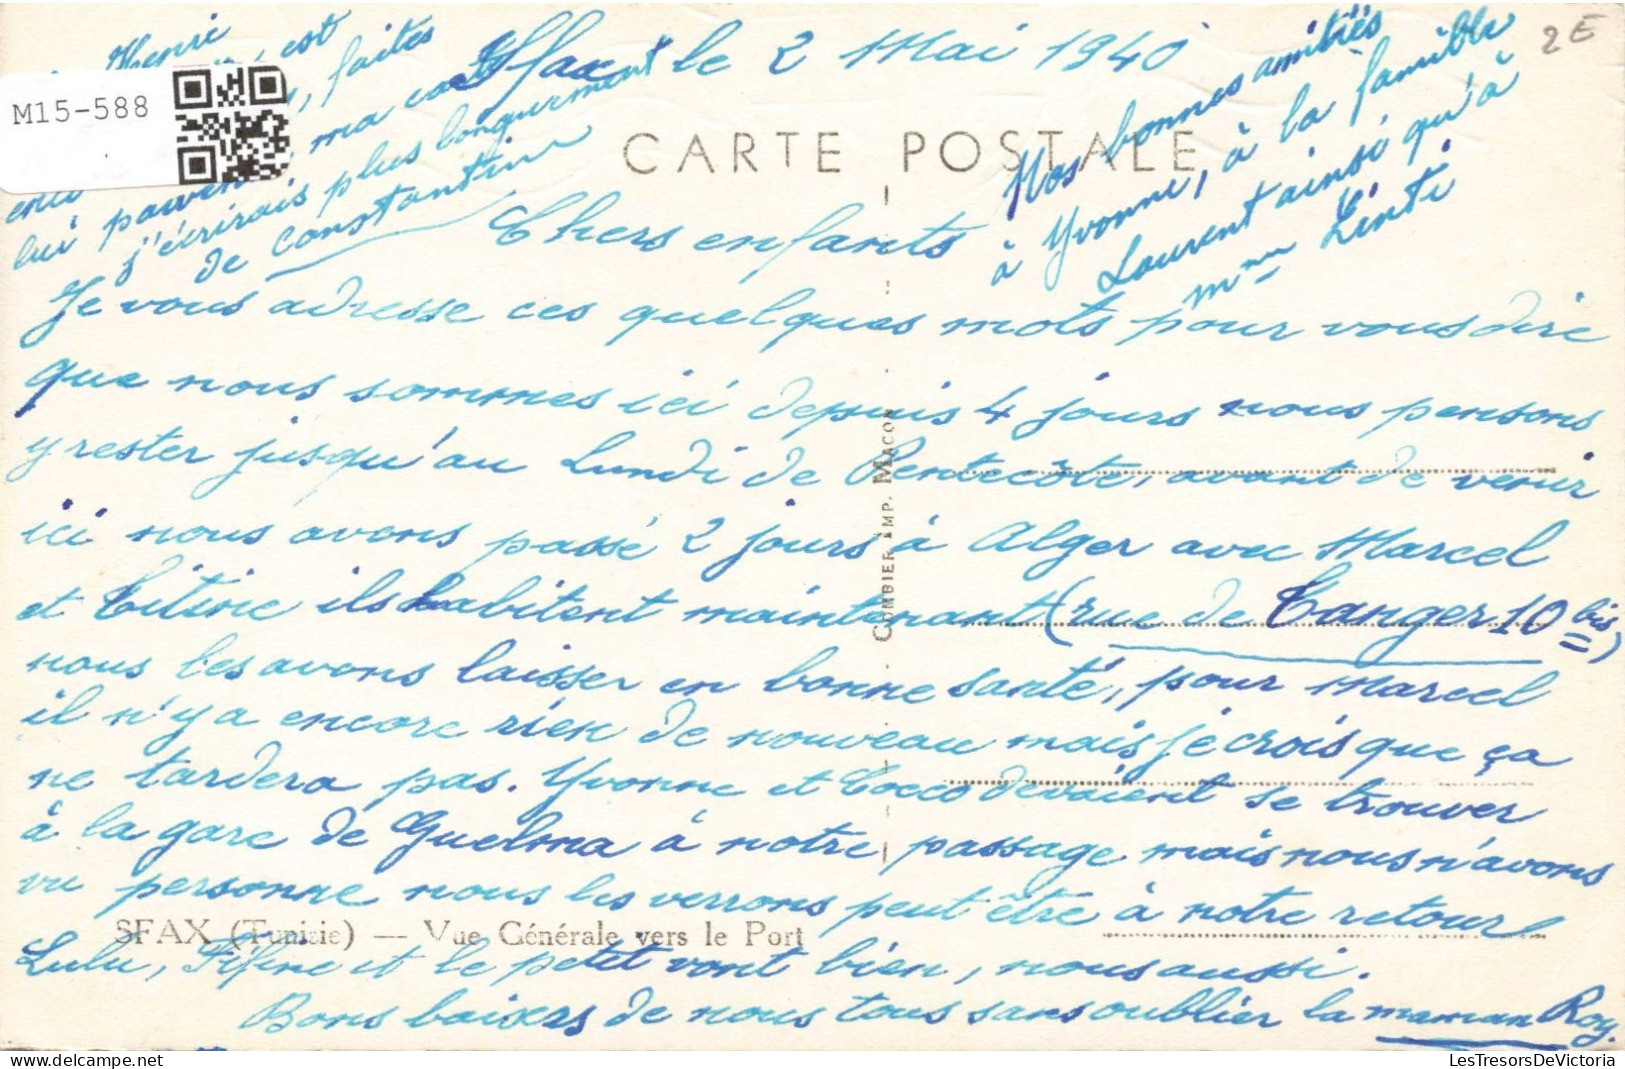 Sfax le 2 Mai 1940
2 E
M15-588
CARTE POSTALE
Henri
est
faites
ma
lui parven
j'écrirais plus longuement
de constantine
Nos bonnes amitiés
à Yvonne, à la famille
Laurent ainsi qu'à
Mme Linti
Chers enfants
Je vous adresse ces quelques mots pour vous dire
que nous sommes ici depuis 4 jours nous pensons
y rester jusqu'au Lundi de Pentecôte, avant de venir
ici nous avons passé 2 jours à Alger avec Marcel
et Titine ils habitent maintenant (rue de Tanger 10 bis)
nous les avons laisser en bonne santé, pour Marcel
il n'y a encore rien de nouveau mais je crois que ça
ne tardera pas. Yvonne et Cocco devaient se trouver
à la gare de Guelma à notre passage mais nous n'avons
vu personne nous les verrons peut être à notre retour
SFAX (Tunisie) — Vue Générale vers le Port
Lulu, Fifine et le petit vont bien, nous aussi.
Bons baisers de nous tous sans oublier la maman Roy.
COMBIER IMP. MACON
LesTresorsDeVictoria